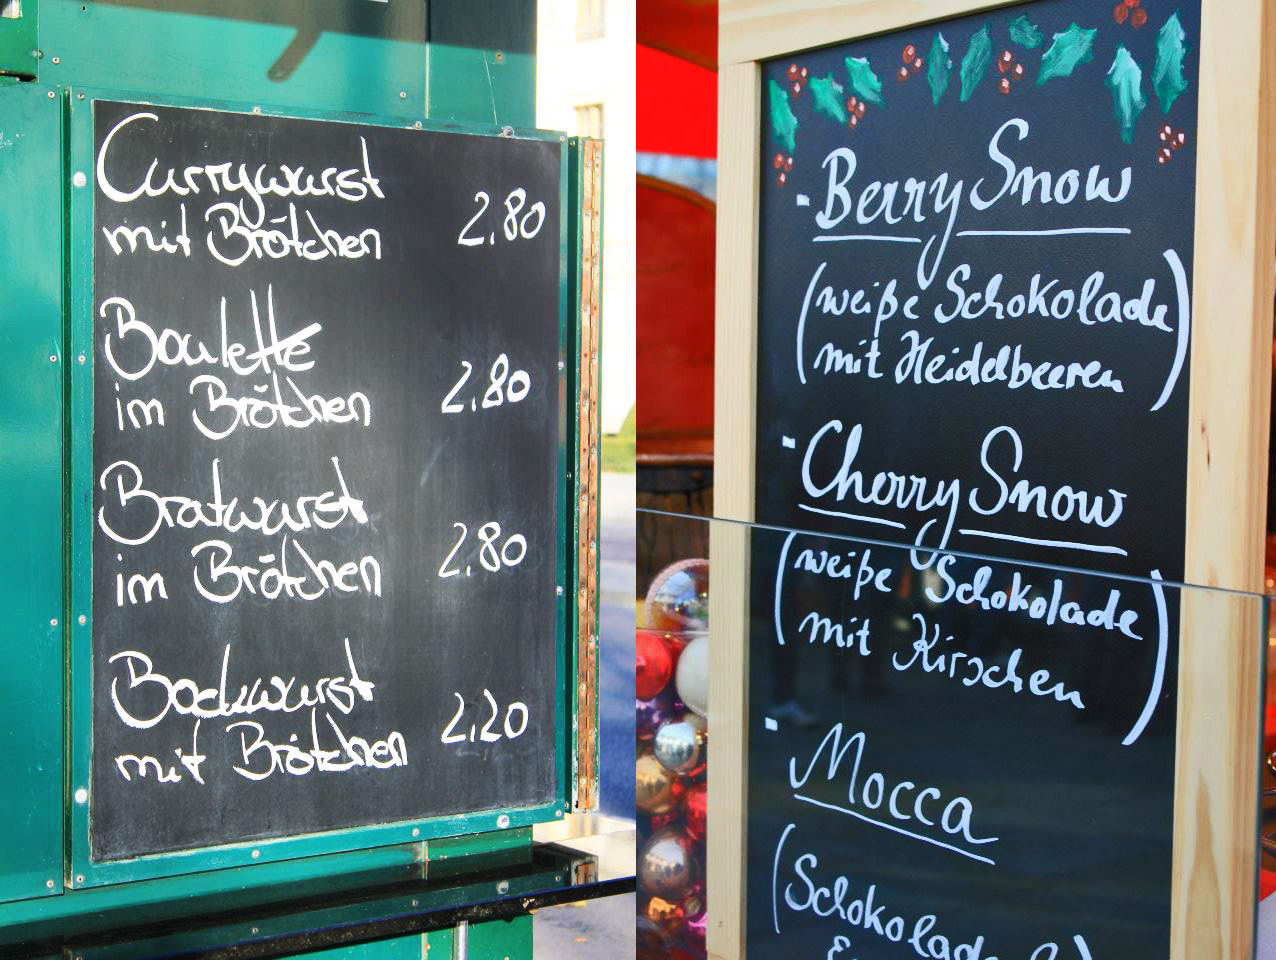 Currywurst
mit Brötchen 2.80
Boulette
im Brötchen 2.80
Bratwurst
im Brötchen 2.80
Bockwurst
mit Brötchen 2.20
- Berry Snow
(weiße Schokolade
mit Heidelbeeren)
- Cherry Snow
(weiße Schokolade
mit Kirschen)
- Mocca
(Schokolade